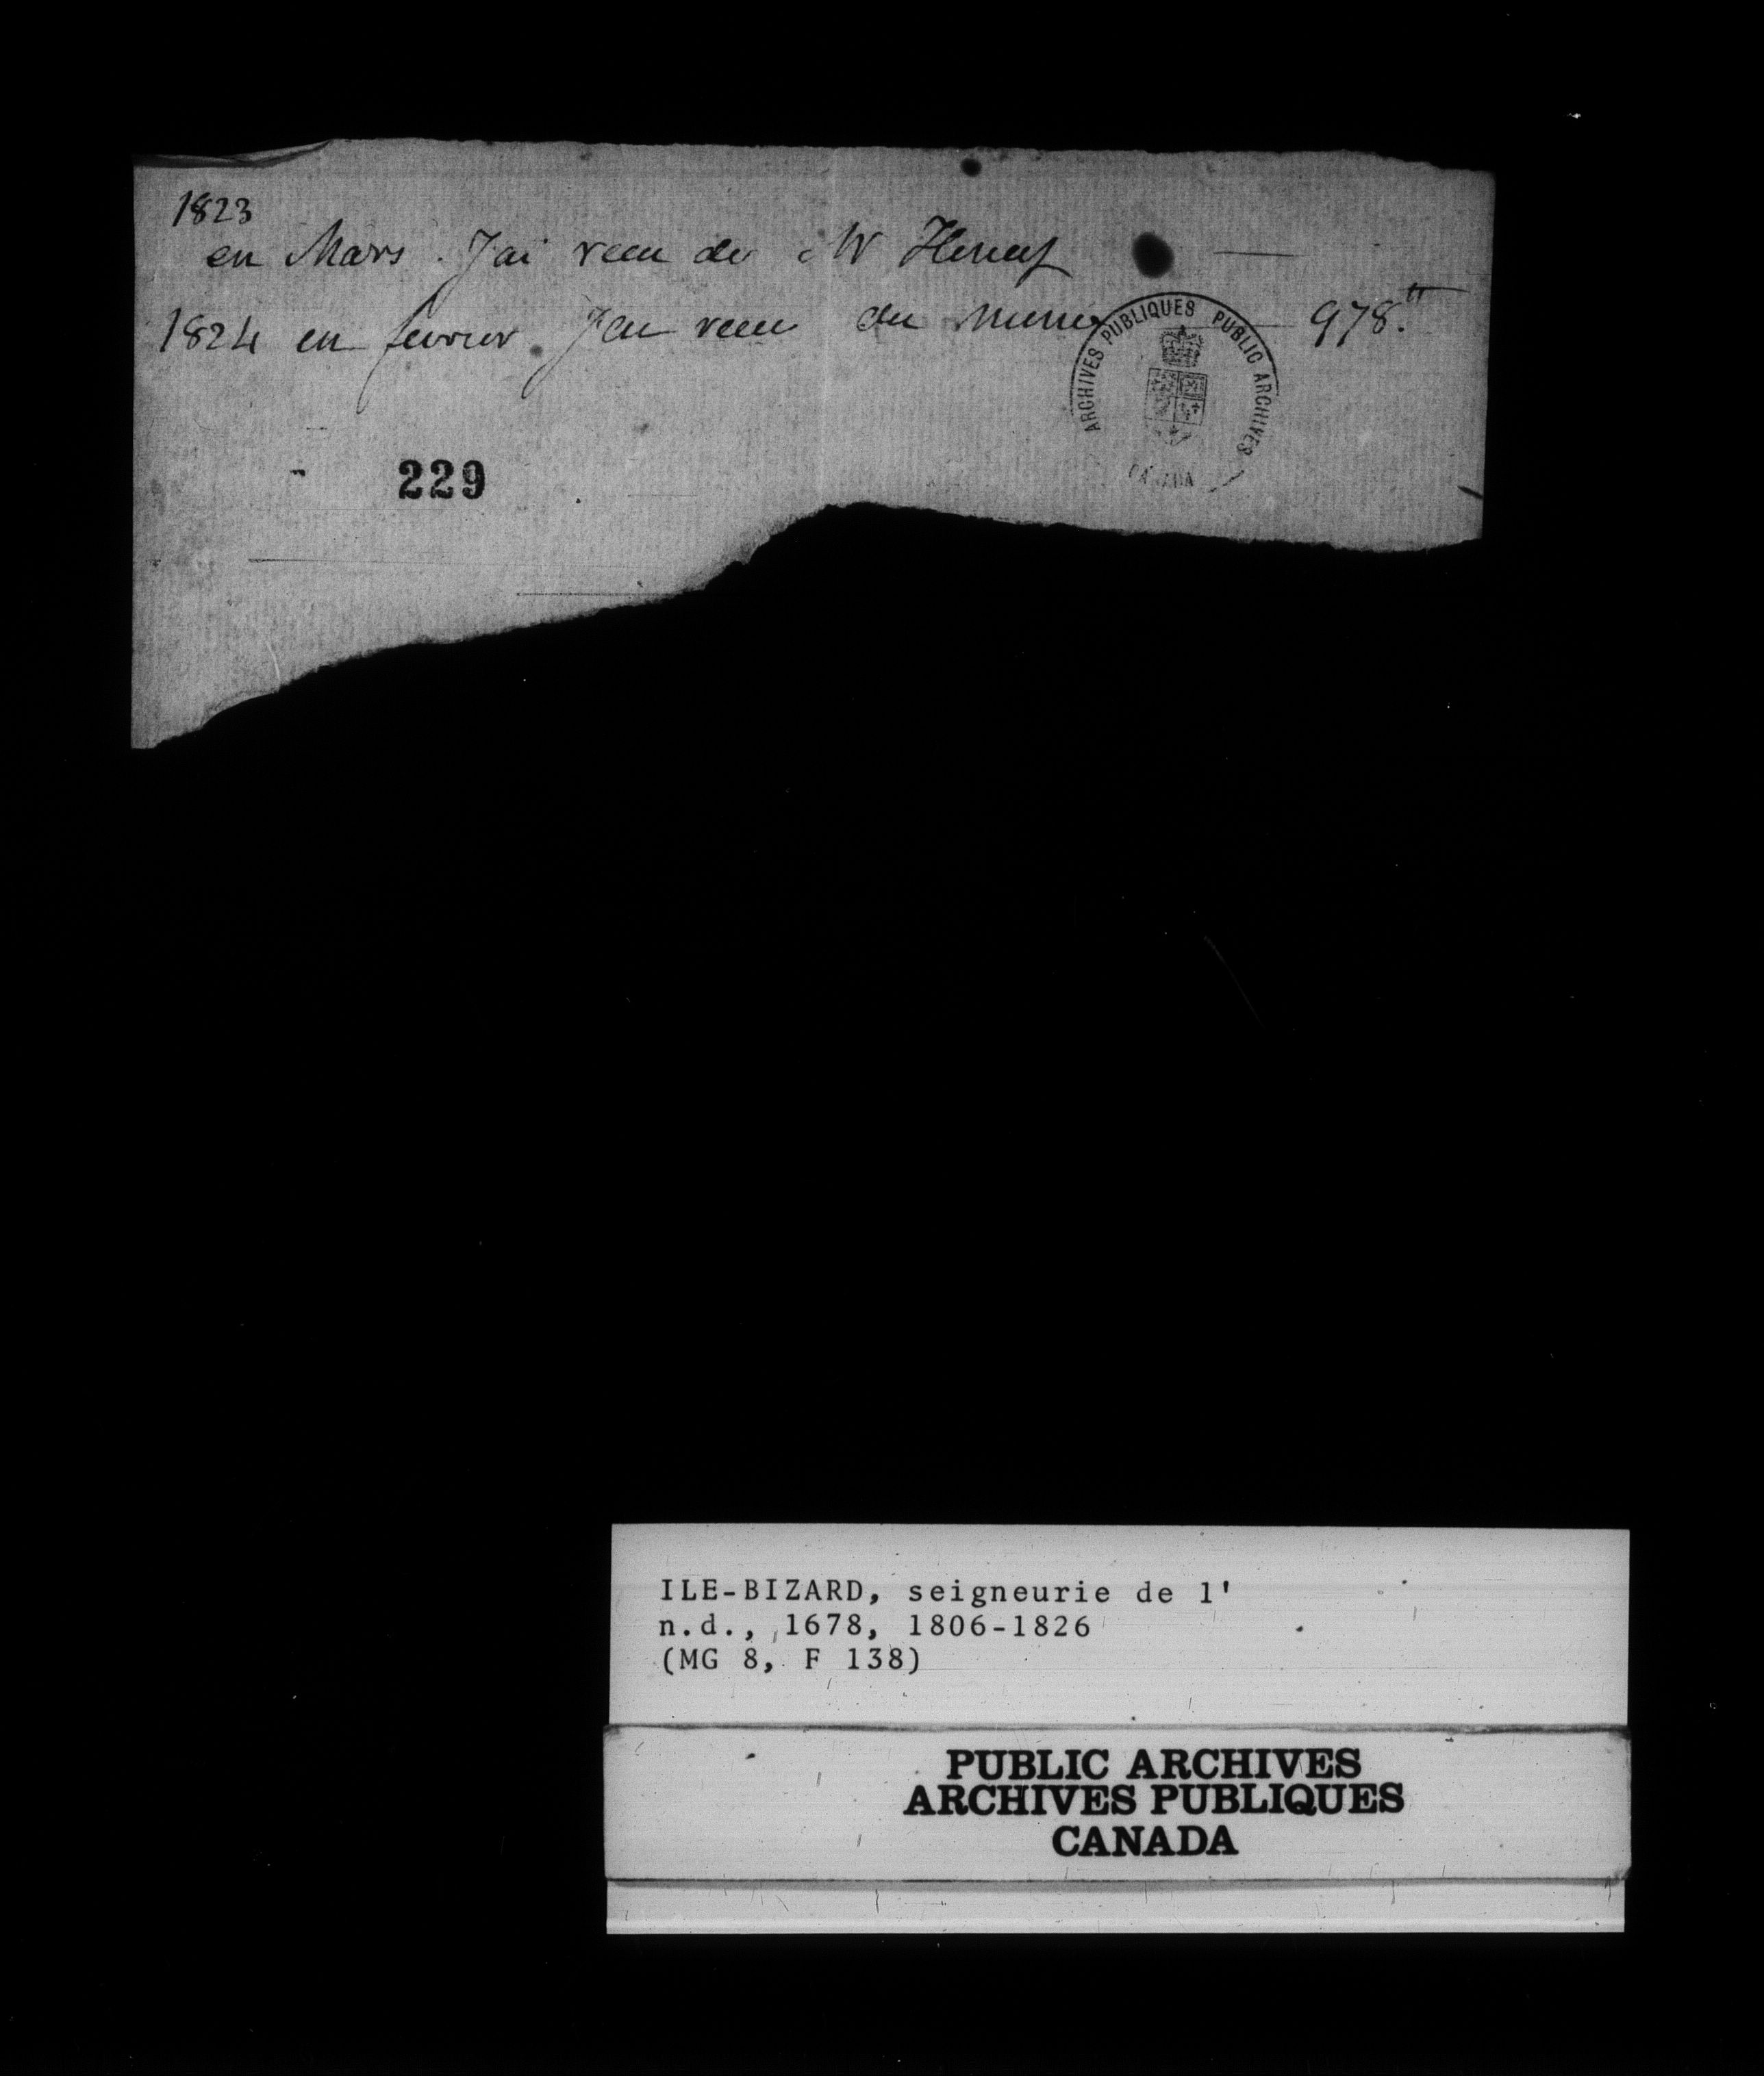 1823
en Mars. Jai recu de Mr
1824 en fevrier Jai recu du meme 978.tt
ARCHIVES PUBLIQUES PUBLIC ARCHIVES
CANADA
229
ILE-BIZARD, seigneurie de l'
n.d., 1678, 1806-1826
(MG 8, F 138)
PUBLIC ARCHIVES
ARCHIVES PUBLIQUES
CANADA